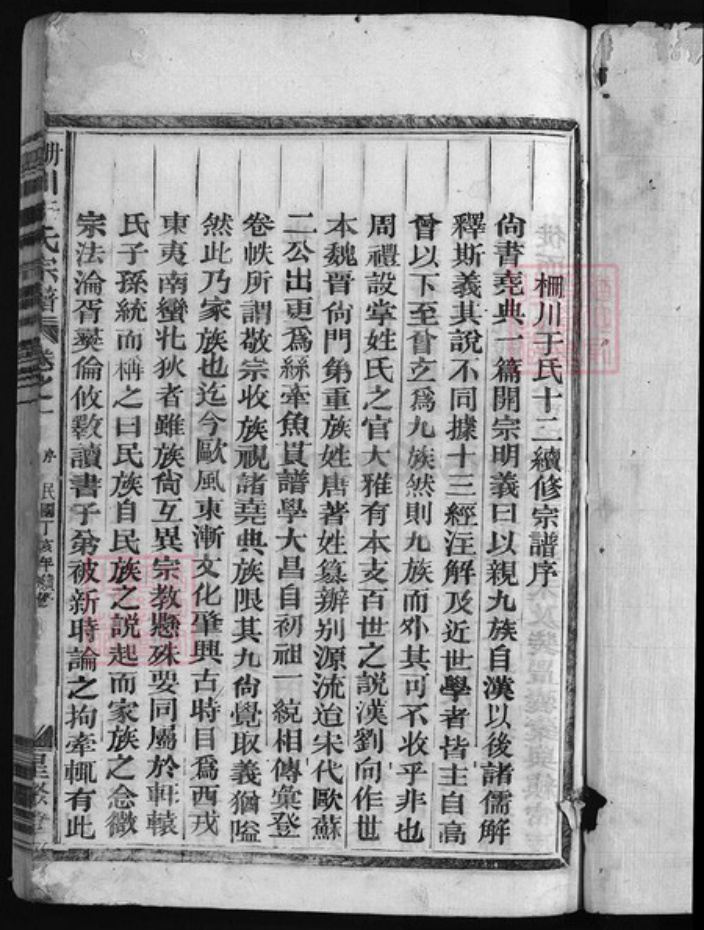 柵川于氏十二續修宗譜序
尙書堯典一篇開宗明義曰以親九族自漢以後諸儒解
釋斯義其說不同據十三經注解及近世學者皆主自高
曾以下至曾玄爲九族然則九族而外其可不收乎非也
周禮設掌姓氏之官大雅有本支百世之說漢劉向作世
本魏晋尙門第重族姓唐著姓纂辦别源流迨宋代歐蘇
二公出更爲絲牽魚貫譜學大昌自初祖一統相傳彙登
卷帙所謂敬宗收族視諸堯典族限其九尙覺取義猶隘
然此乃家族也迄今歐風東漸文化肇興古時目爲西戎
東夷南蠻北狄者雖族尙互異宗教懸殊要同屬於軒轅
氏子孫統而稱之曰民族自民族之說起而家族之念微
宗法淪胥彝倫攸斁讀書子弟被新時論之拘牽輒有此
柵川于氏宗譜 卷之一 序 民國丁亥年續修